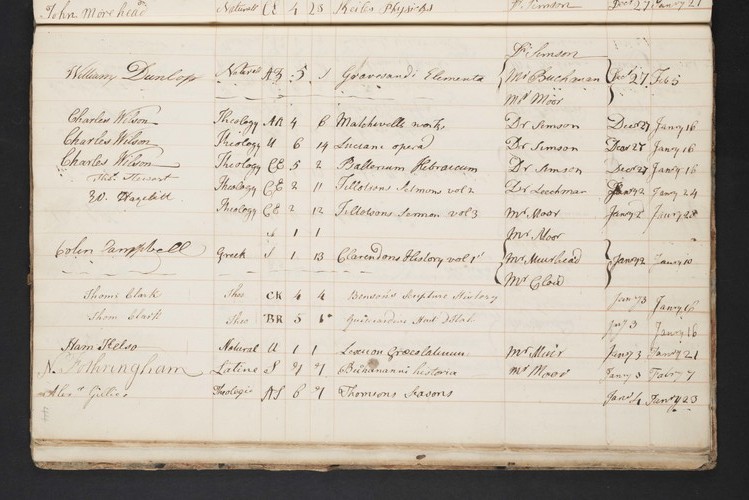 John Morehead Naturall CE 4 28 Keils Physicks Dr Simson Decr 27 Janry 21
Dr Simson
William Dunlop Natural AB 5 1 Gravesandi Elementa Mr Buchman Decr 27 Feb 5
Mr Moor
Charles Wilson Theology AR 4 6 Dr Simson Decr 27 Janry 16
Charles Wilson Theology U 6 14 Luciani opera Dr Simson Decr 27 Janry 16
Charles Wilson Theology CE 5 2 Psalterium Hebraicum Dr Simson Decr 27 Janry 16
Stewart Theology CE 2 11 Tillotsons Sermons vol 2 Dr Leechman Janry 2 Janry 24
Theology CE 2 12 Tillotsons Sermon vol 3 Mr Moor Janry 2 Janry 28
1 1 Mr Moor
Colin Campbell Greek S 1 13 Clarendons History vol 1st Mr Muirhead Janry 2 Janry 10
Mr Clow
Thoms Clark Theo CR 4 4 Benson's Scripture History Jany 3 Janry 16
Thom Clark Theo BR 5 Jny 3 Janry 16
Ham Kelso Natural U 1 1 Lexicon Græcolatinum Mr Muir Janry 3 Janry 21
N. Fothringham Latine S Buchanani historia Mr Moor Janry 3 Febry 7
Alexr Theologie AS 6 Thomsons Seasons Janr 4 Janry 23